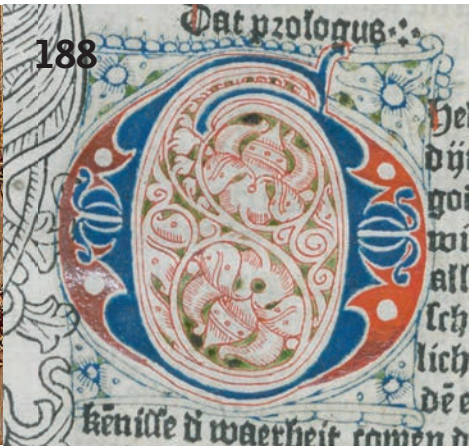 188
Dat prologus
he
dij
goi
wi
all
sch
lich
dē e
kēnisse d waerheit comen d